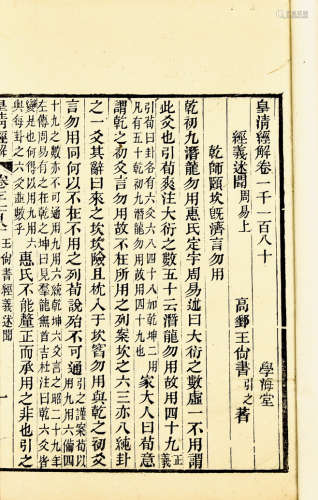 皇清經解卷一千一百八十　學海堂
經義述聞周易上　高郵王尚書引之著
乾師頤坎旣濟言勿用
乾初九潛龍勿用惠氏定宇周易述曰大衍之數虛一不用謂
此爻也引荀爽注大衍之數五十云潛龍勿用故用四十九正義
引荀曰卦各有六爻六八四十八加乾坤二用凡有五十乾初九潛龍勿用故用四十九也家大人曰荀意
謂乾之初爻言勿用故不在所用之列案坎之六三亦八純卦
之一爻其辭曰來之坎坎險且枕入于坎窞勿用與乾之初爻
言勿用同何以不在不用之列荀說殆不可通引之謹案荀以用九用六備四
十九之數亦不可通用九用六統乾坤六爻言之昭二十九年左傳周易有之在乾之坤曰見羣龍无首吉杜注曰乾六爻皆
變是也何得以用九用六與每卦之六爻並數乎惠氏不能釐正而承用之非也引之
皇清經解
王尚書經義述聞
一